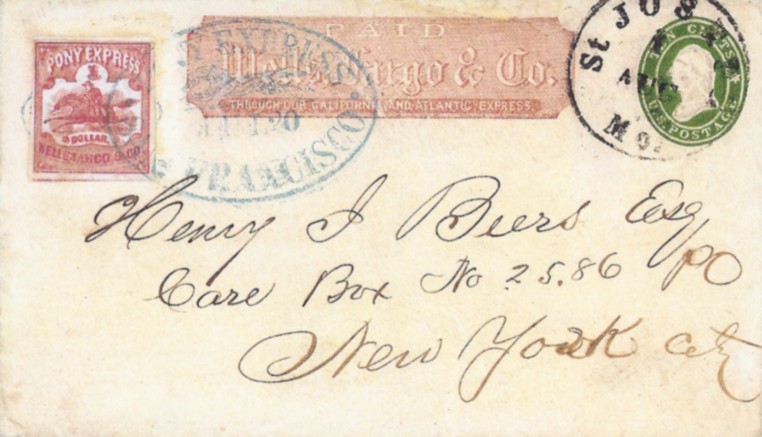 PONY EXPRESS
1
DOLLAR.
WELLS FARGO & CO.
PAID
Wells, Fargo & Co.
THROUGH OUR CALIFORNIA AND ATLANTIC EXPRESS.
EXPRESS
20
FRANCISCO.
St JOSE
AUG
Mo.
TEN CENTS
U.S. POSTAGE
Henry J Beers Esq
Care Box No 25.86 PO
New York city